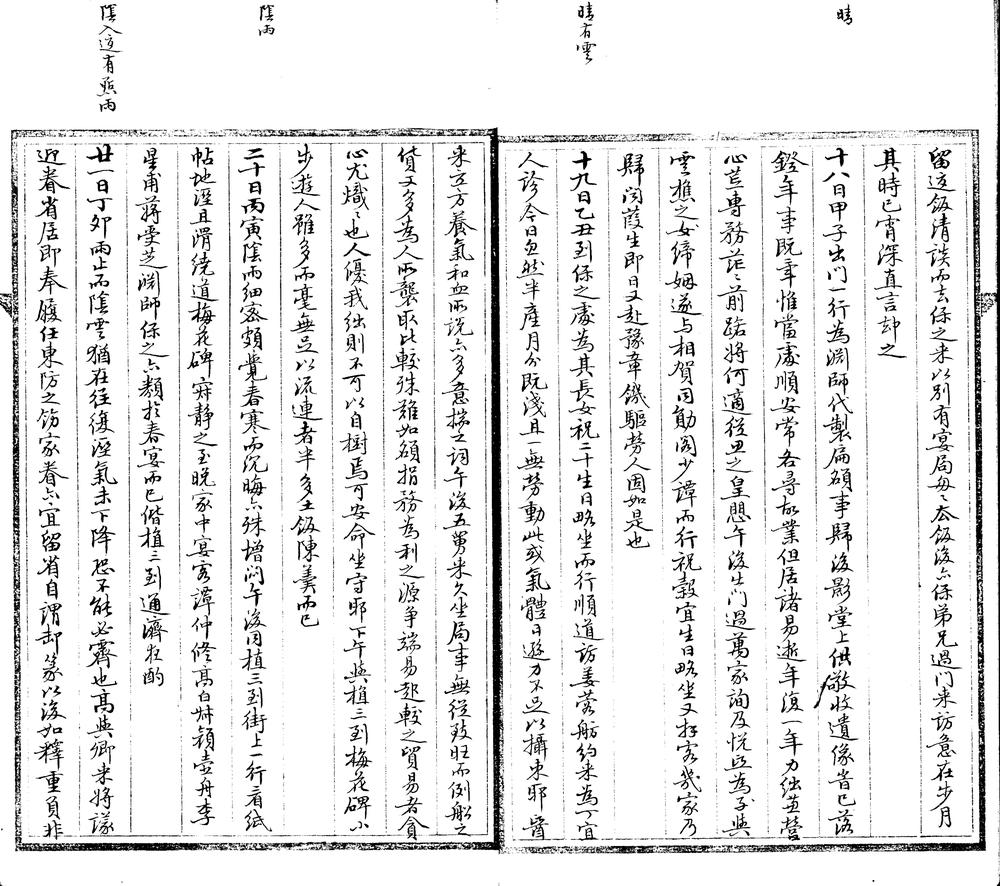 晴
晴有雲
陰雨
陰入這有點雨
留這飯清談而去保之來以別有宴局每每夲飯後亦保弟兄過門來訪意在步月
其時已宵深直言却之
十八日甲子出門一行為淵師代製扁額事歸後影堂上供敬收遺像皆已落
鐙年事既畢惟當處順安常各尋故業但居諸易逝年復一年力絀
心荒專務茫茫前路將何適從思之皇愳午後出門過萬家詢及悅臣為子與
雲樵之女締姻遂與相賀同勛閣少譚而行祝穀宜生日略坐又拜客幾家乃
歸聞葭生即日又赴豫章饑驅勞人固如是也
十九日乙丑到保之處為其長女祝二十生日略坐而行順道訪姜蓉舫約來為丁宜
人診今日忽然半產月分既淺且一無勞動此或氣體日遜力不足以攝束耶
來立方養氣和血所說亦多意揣之詞午後五舅來久坐局事無從致旺而例船之
貨又多為人所襲取比較殊難如碩捐務為利之源爭端易起較之貿易者貪
心尤熾熾也人優我絀則不可以自樹焉可安命坐守耶下午與植三到梅花碑小
步遊人雖多而毫無足以流連者半多土飯陳羹而已
二十日丙寅陰雨細密頗覺春寒而沉晦亦殊增悶午後同植三到街上一行看紙
帖地溼且滑繞道梅花碑寂靜之至晚家中宴客譚仲修高白叔穎壺舟李
星甫蔣雯芝淵師保之亦類於春宴而已偕植三到通濟夜酌
廿一日丁卯雨止而陰雲猶在往復溼氣未下降恐不能必霽也高與卿來將議
近眷省居即奉履任東防之飭家眷亦宜留省自謂卸篆以後如釋重負非